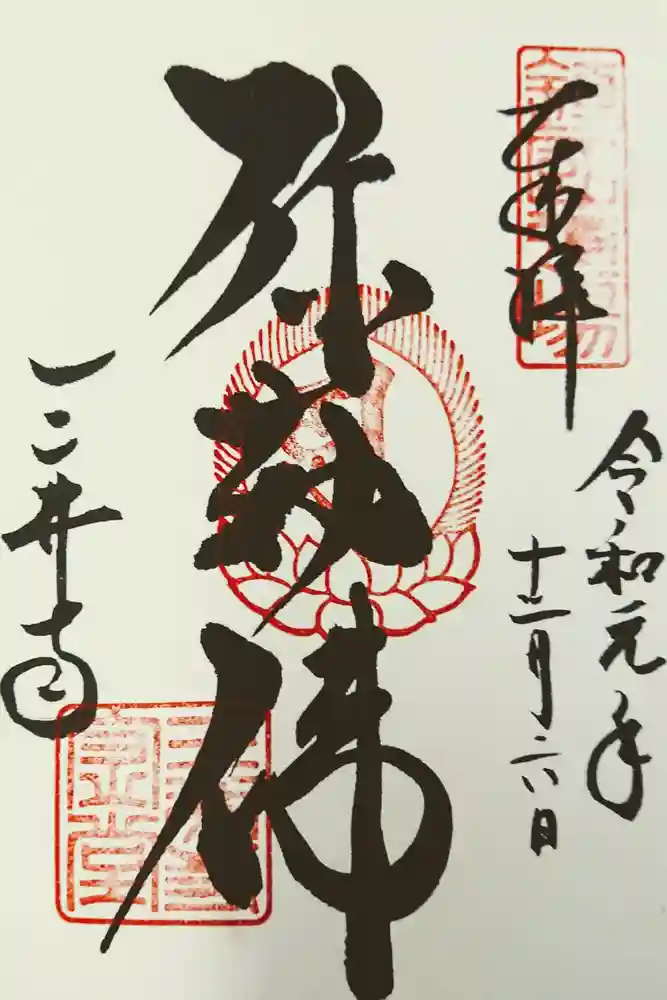 奉拝
令和元年
十二月六日
弥勒佛
三井寺